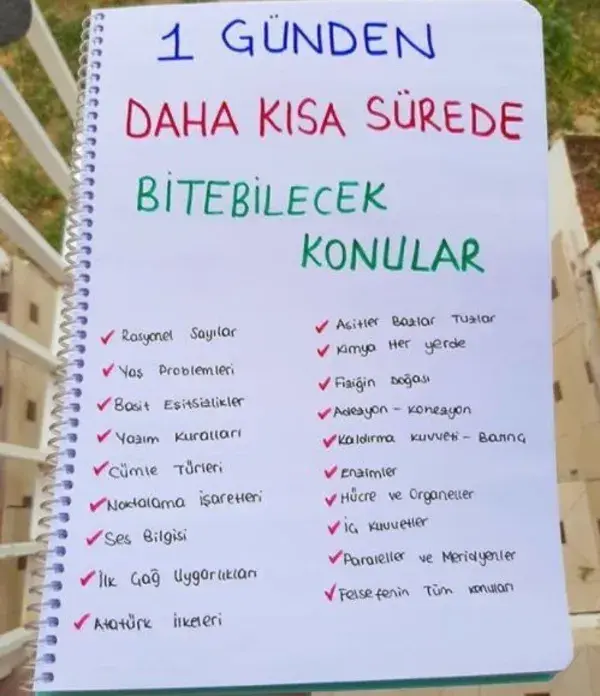 1 GÜNDEN
DAHA KISA SÜREDE
BİTEBİLECEK
KONULAR
Rasyonel Sayılar
Yaş Problemleri
Basit Eşitsizlikler
Yazım Kuralları
Cümle Türleri
Noktalama İşaretleri
Ses Bilgisi
İlk Çağ Uygarlıkları
Atatürk İlkeleri
Asitler Bazlar Tuzlar
Kimya Her yerde
Fiziğin Doğası
Adezyon - Kohezyon
Kaldırma Kuvveti - Basınç
Enzimler
Hücre ve Organeller
İç Kuvvetler
Paraleller ve Meridyenler
Felsefenin Tüm konuları